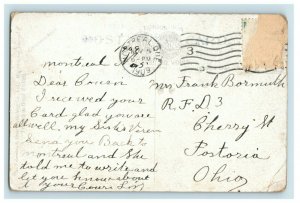 MONTREAL QUE
1909
3
montreal
Dear Cousin
I received your
Card glad you are
all well, my Sister
sends you Back to
montreal and She
told me to write and
let you know about
it your Cousin
Mrs Frank Bormuth
R. F. D 3
Cherry St
Fostoria
Ohio